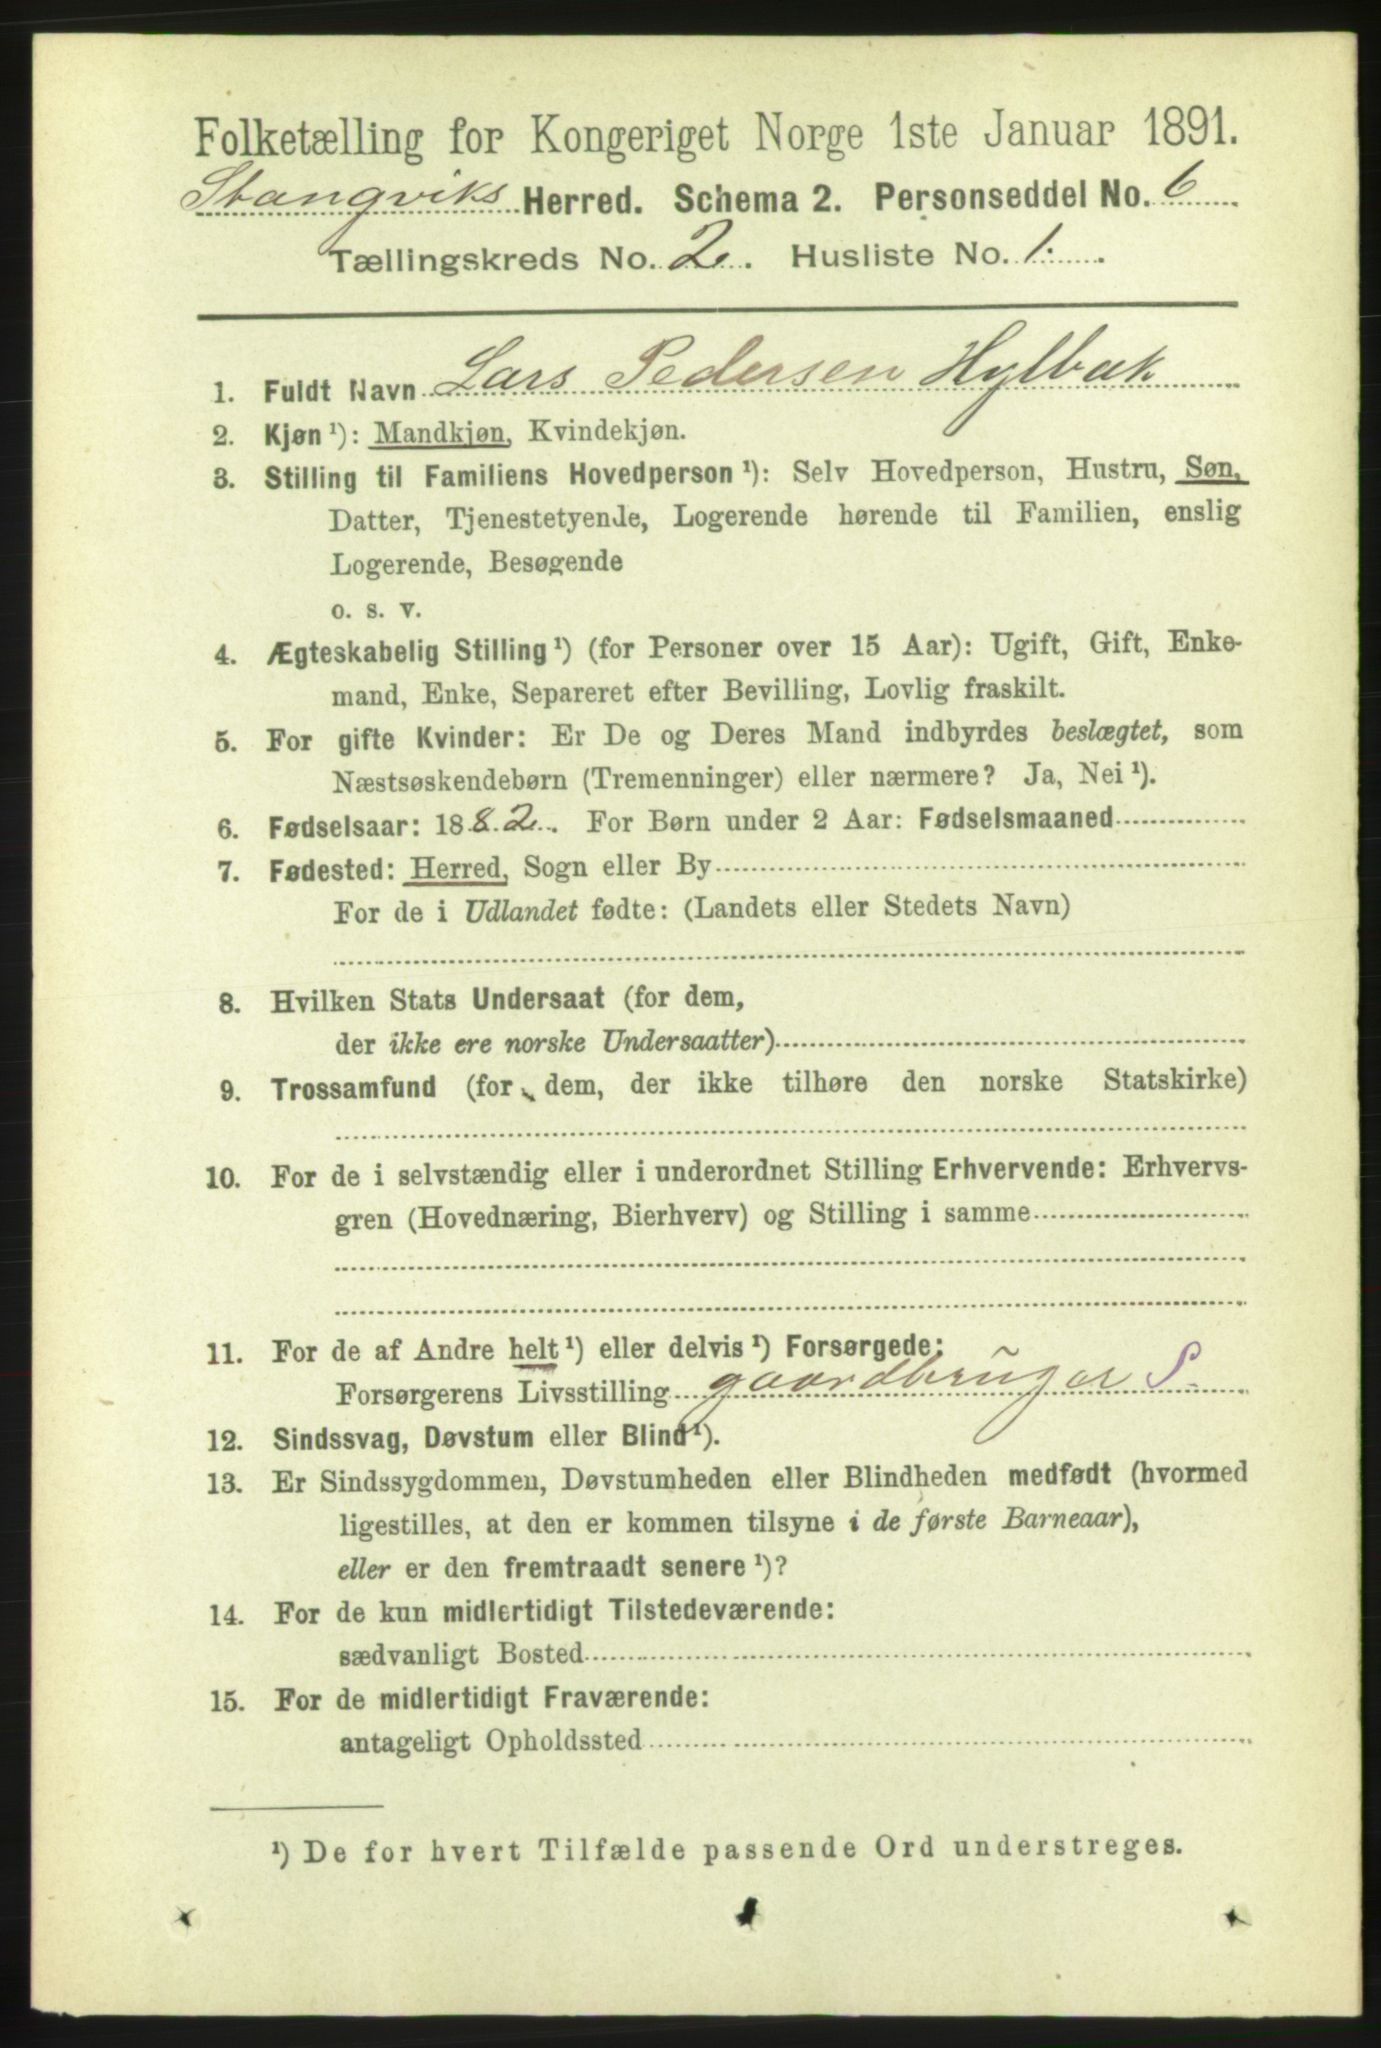 Folketælling for Kongeriget Norge 1ste Januar 1891.
Stangviks Herred. Schema 2. Personseddel No. 6
Tællingskreds No. 2. Husliste No. 1.
1. Fuldt Navn Lars Pedersen Hylbak
2. Kjøn ¹): Mandkjøn, Kvindekjøn.
3. Stilling til Familiens Hovedperson ¹): Selv Hovedperson, Hustru, Søn,
Datter, Tjenestetyende, Logerende hørende til Familien, enslig
Logerende, Besøgende
o. s. v.
4. Ægteskabelig Stilling ¹) (for Personer over 15 Aar): Ugift, Gift, Enke-
mand, Enke, Separeret efter Bevilling, Lovlig fraskilt.
5. For gifte Kvinder: Er De og Deres Mand indbyrdes beslægtet, som
Næstsøskendebørn (Tremenninger) eller nærmere? Ja, Nei ¹).
6. Fødselsaar: 1882. For Børn under 2 Aar: Fødselsmaaned
7. Fødested: Herred, Sogn eller By
For de i Udlandet fødte: (Landets eller Stedets Navn)
8. Hvilken Stats Undersaat (for dem,
der ikke ere norske Undersaatter)
9. Trossamfund (for dem, der ikke tilhøre den norske Statskirke)
10. For de i selvstændig eller i underordnet Stilling Erhvervende: Erhvervs-
gren (Hovednæring, Bierhverv) og Stilling i samme
11. For de af Andre helt ¹) eller delvis ¹) Forsørgede:
Forsørgerens Livsstilling gaardbruger S.
12. Sindssvag, Døvstum eller Blind ¹).
13. Er Sindssygdommen, Døvstumheden eller Blindheden medfødt (hvormed
ligestilles, at den er kommen tilsyne i de første Barneaar),
eller er den fremtraadt senere ¹)?
14. For de kun midlertidigt Tilstedeværende:
sædvanligt Bosted
15. For de midlertidigt Fraværende:
antageligt Opholdssted
¹) De for hvert Tilfælde passende Ord understreges.